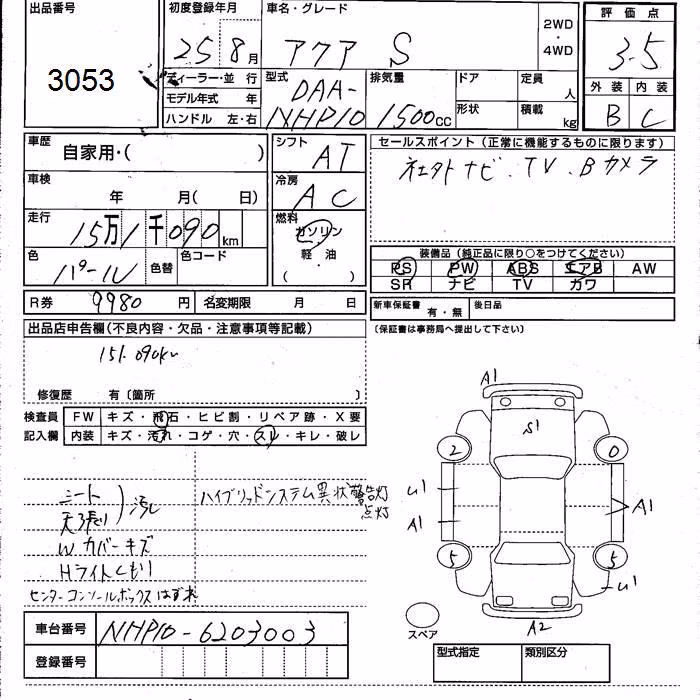 出品番号
3053
初度登録年月
25 8月
車名・グレード
アクア S
2WD
・
4WD
評価点
3.5
外装 内装
B C
ディーラー・並 行
モデル年式 年
ハンドル 左・右
型式
DAA-
NHP10
排気量
1500cc
ドア
形状
定員
人
積載
kg
車歴
自家用・( )
シフト
AT
車検
年 月( 日)
冷房
AC
走行
15万1千090km
燃料
ガソリン
・
軽 油
( )
色
パール
色替
色コード
セールスポイント (正常に機能するものに限ります)
ナビ、TV、Bカメラ
装備品 (純正品に限り○をつけてください)
PS PW ABS エアB AW
SR ナビ TV カワ
R券 9980円
名変期限 月 日
新車保証書 有・無
後日品
(保証書は事務局へ提出して下さい)
出品店申告欄(不良内容・欠品・注意事項等記載)
151.090km
修復歴 有〔箇所 〕
検査員
記入欄
FW キズ・飛石・ヒビ割・リペア跡・X要
内装 キズ・汚れ・コゲ・穴・スレ・キレ・破レ
シート
天張り
汚れ
Wカバーキズ
Hライトくもり
センターコンソールボックスはずれ
ハイブリッドシステム異状警告灯
点灯
A1
S1
2
0
u1
A1
A1
5
5
u1
A2
スペア
車台番号 NHP10-6203003
登録番号
型式指定 類別区分